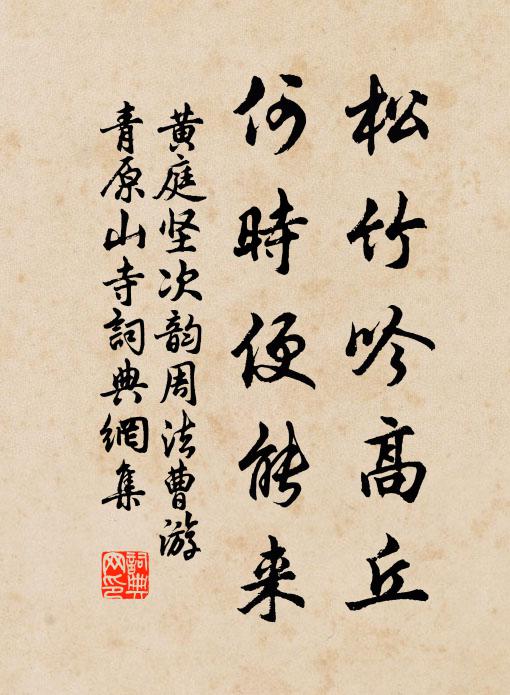 松竹吟高丘
何時便能来
黄庭坚次韵周法曹游
青原山寺詞典網集
詞典网印